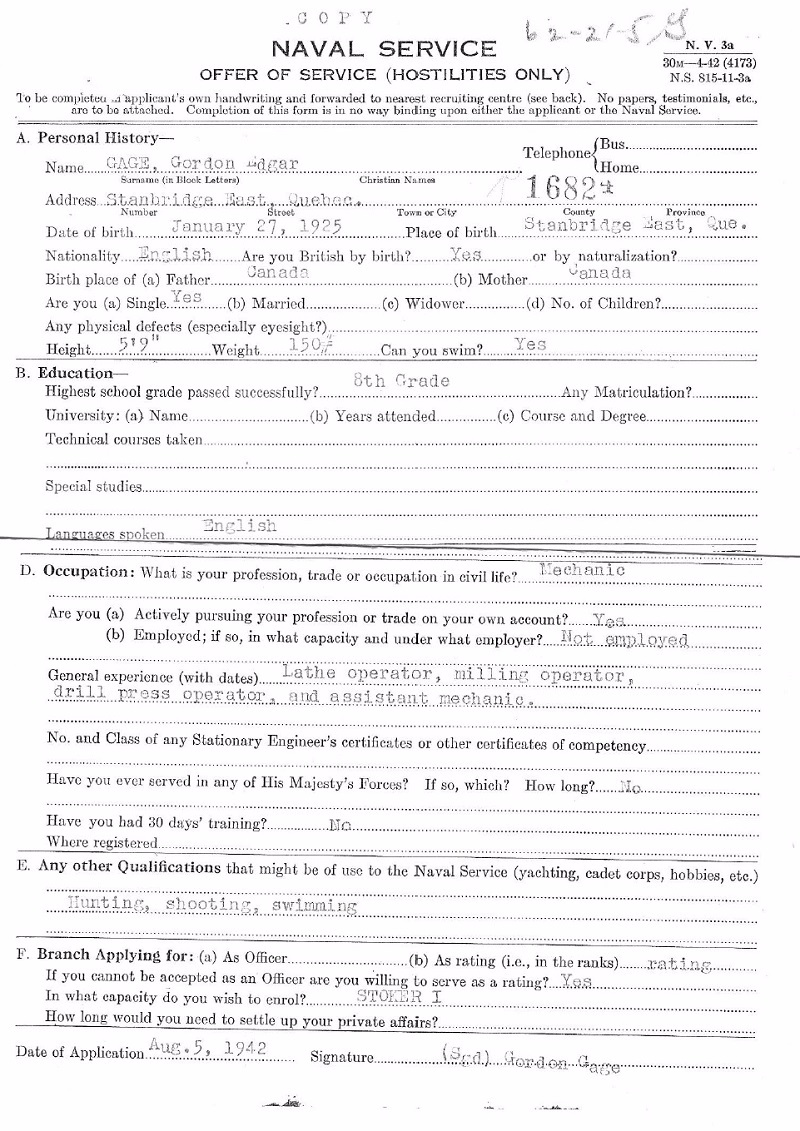 COPY
62-21-5
NAVAL SERVICE
OFFER OF SERVICE (HOSTILITIES ONLY)
N. V. 3a
30M—4-42 (4173)
N.S. 815-11-3a
To be completed in applicant's own handwriting and forwarded to nearest recruiting centre (see back). No papers, testimonials, etc.,
are to be attached. Completion of this form is in no way binding upon either the applicant or the Naval Service.
A. Personal History—
Telephone { Bus.
Home
Name GAGE, Gordon Edgar
Surname (in Block Letters) Christian Names
1682
Address Stanbridge East, Quebec.
Number Street Town or City County Province
Date of birth January 27, 1925 Place of birth Stanbridge East, Que.
Nationality English Are you British by birth? Yes or by naturalization?
Birth place of (a) Father Canada (b) Mother Canada
Are you (a) Single Yes (b) Married (c) Widower (d) No. of Children?
Any physical defects (especially eyesight?)
Height 5'9" Weight 150# Can you swim? Yes
B. Education—
Highest school grade passed successfully? 8th Grade Any Matriculation?
University: (a) Name (b) Years attended (c) Course and Degree
Technical courses taken
Special studies
Languages spoken English
D. Occupation: What is your profession, trade or occupation in civil life? Mechanic
Are you (a) Actively pursuing your profession or trade on your own account? Yes
(b) Employed; if so, in what capacity and under what employer? Not employed
General experience (with dates) Lathe operator, milling operator,
drill press operator, and assistant mechanic.
No. and Class of any Stationary Engineer's certificates or other certificates of competency
Have you ever served in any of His Majesty's Forces? If so, which? How long? No
Have you had 30 days' training? No
Where registered
E. Any other Qualifications that might be of use to the Naval Service (yachting, cadet corps, hobbies, etc.)
Hunting, shooting, swimming
F. Branch Applying for: (a) As Officer (b) As rating (i.e., in the ranks) rating
If you cannot be accepted as an Officer are you willing to serve as a rating? Yes
In what capacity do you wish to enrol? STOKER I
How long would you need to settle up your private affairs?
Date of Application Aug. 5, 1942 Signature (Sgd) Gordon Gage